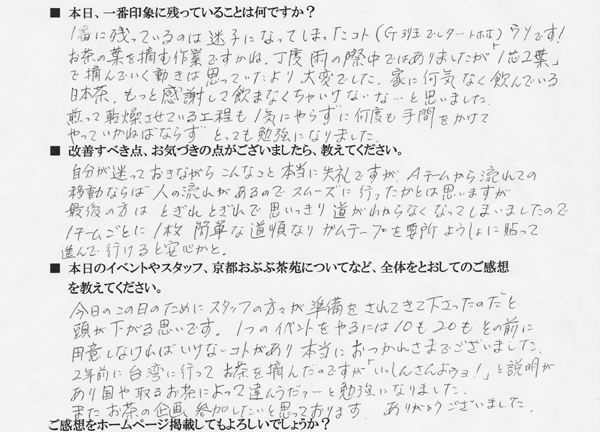 ■ 本日、一番印象に残っていることは何ですか？
1番に残っているのは迷子になってしまったコト(G3班でレタートホホ)ウソです!
お茶の葉を摘む作業ですかね。丁度雨の際中ではありましたが「1芯2葉」
で摘んでいく動きは思っていたより大変でした。家に何気なく飲んでいる
日本茶。もっと感謝して飲まなくちゃいけないな…と思いました。
煎って乾燥させている工程も1気にやらずに何度も手間をかけて
やっていかねばならず とっても勉強になりました。
■ 改善すべき点、お気づきの点がございましたら、教えてください。
自分が迷っておきながらこんなこと本当に失礼ですが、Aチームから流れての
移動ならば 人の流れがあるのでスムーズに行ったかとは思いますが
最後の方は とぎれとぎれで思いっきり道がわからなくなってしまいましたので
1チームごとに1枚 簡単な道順なりガムテープを要所ようしょに貼って
進んで行けると安心かと。
■ 本日のイベントやスタッフ、京都おぶぶ茶苑についてなど、全体をとおしてのご感想
を教えてください。
今日のこの日のためにスタッフの方々が準備をされてきて下さったのだと
頭が下がる思いです。1つのイベントをやるには10も20もその前に
用意しなければいけないコトがあり本当におつかれさまでございました。
2年前に台湾に行ってお茶を摘んだのですが「いっしんさんようョ!」と説明が
あり国や取るお茶によって違うんだァーと勉強になりました。
またお茶の企画、参加したいと思っております。 ありがとうございました。
ご感想をホームページ掲載してもよろしいでしょうか？